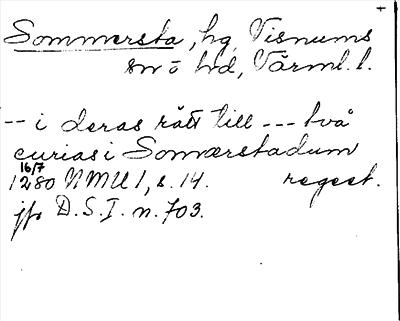 +
Sommersta, hg, Visnums
sn o hd, Värml. l.
-- i deras rätt till --- två
curias i Somærstadum
16/7
1280 NMU 1, s. 14. regest.
jfr D.S.I. n. 703.